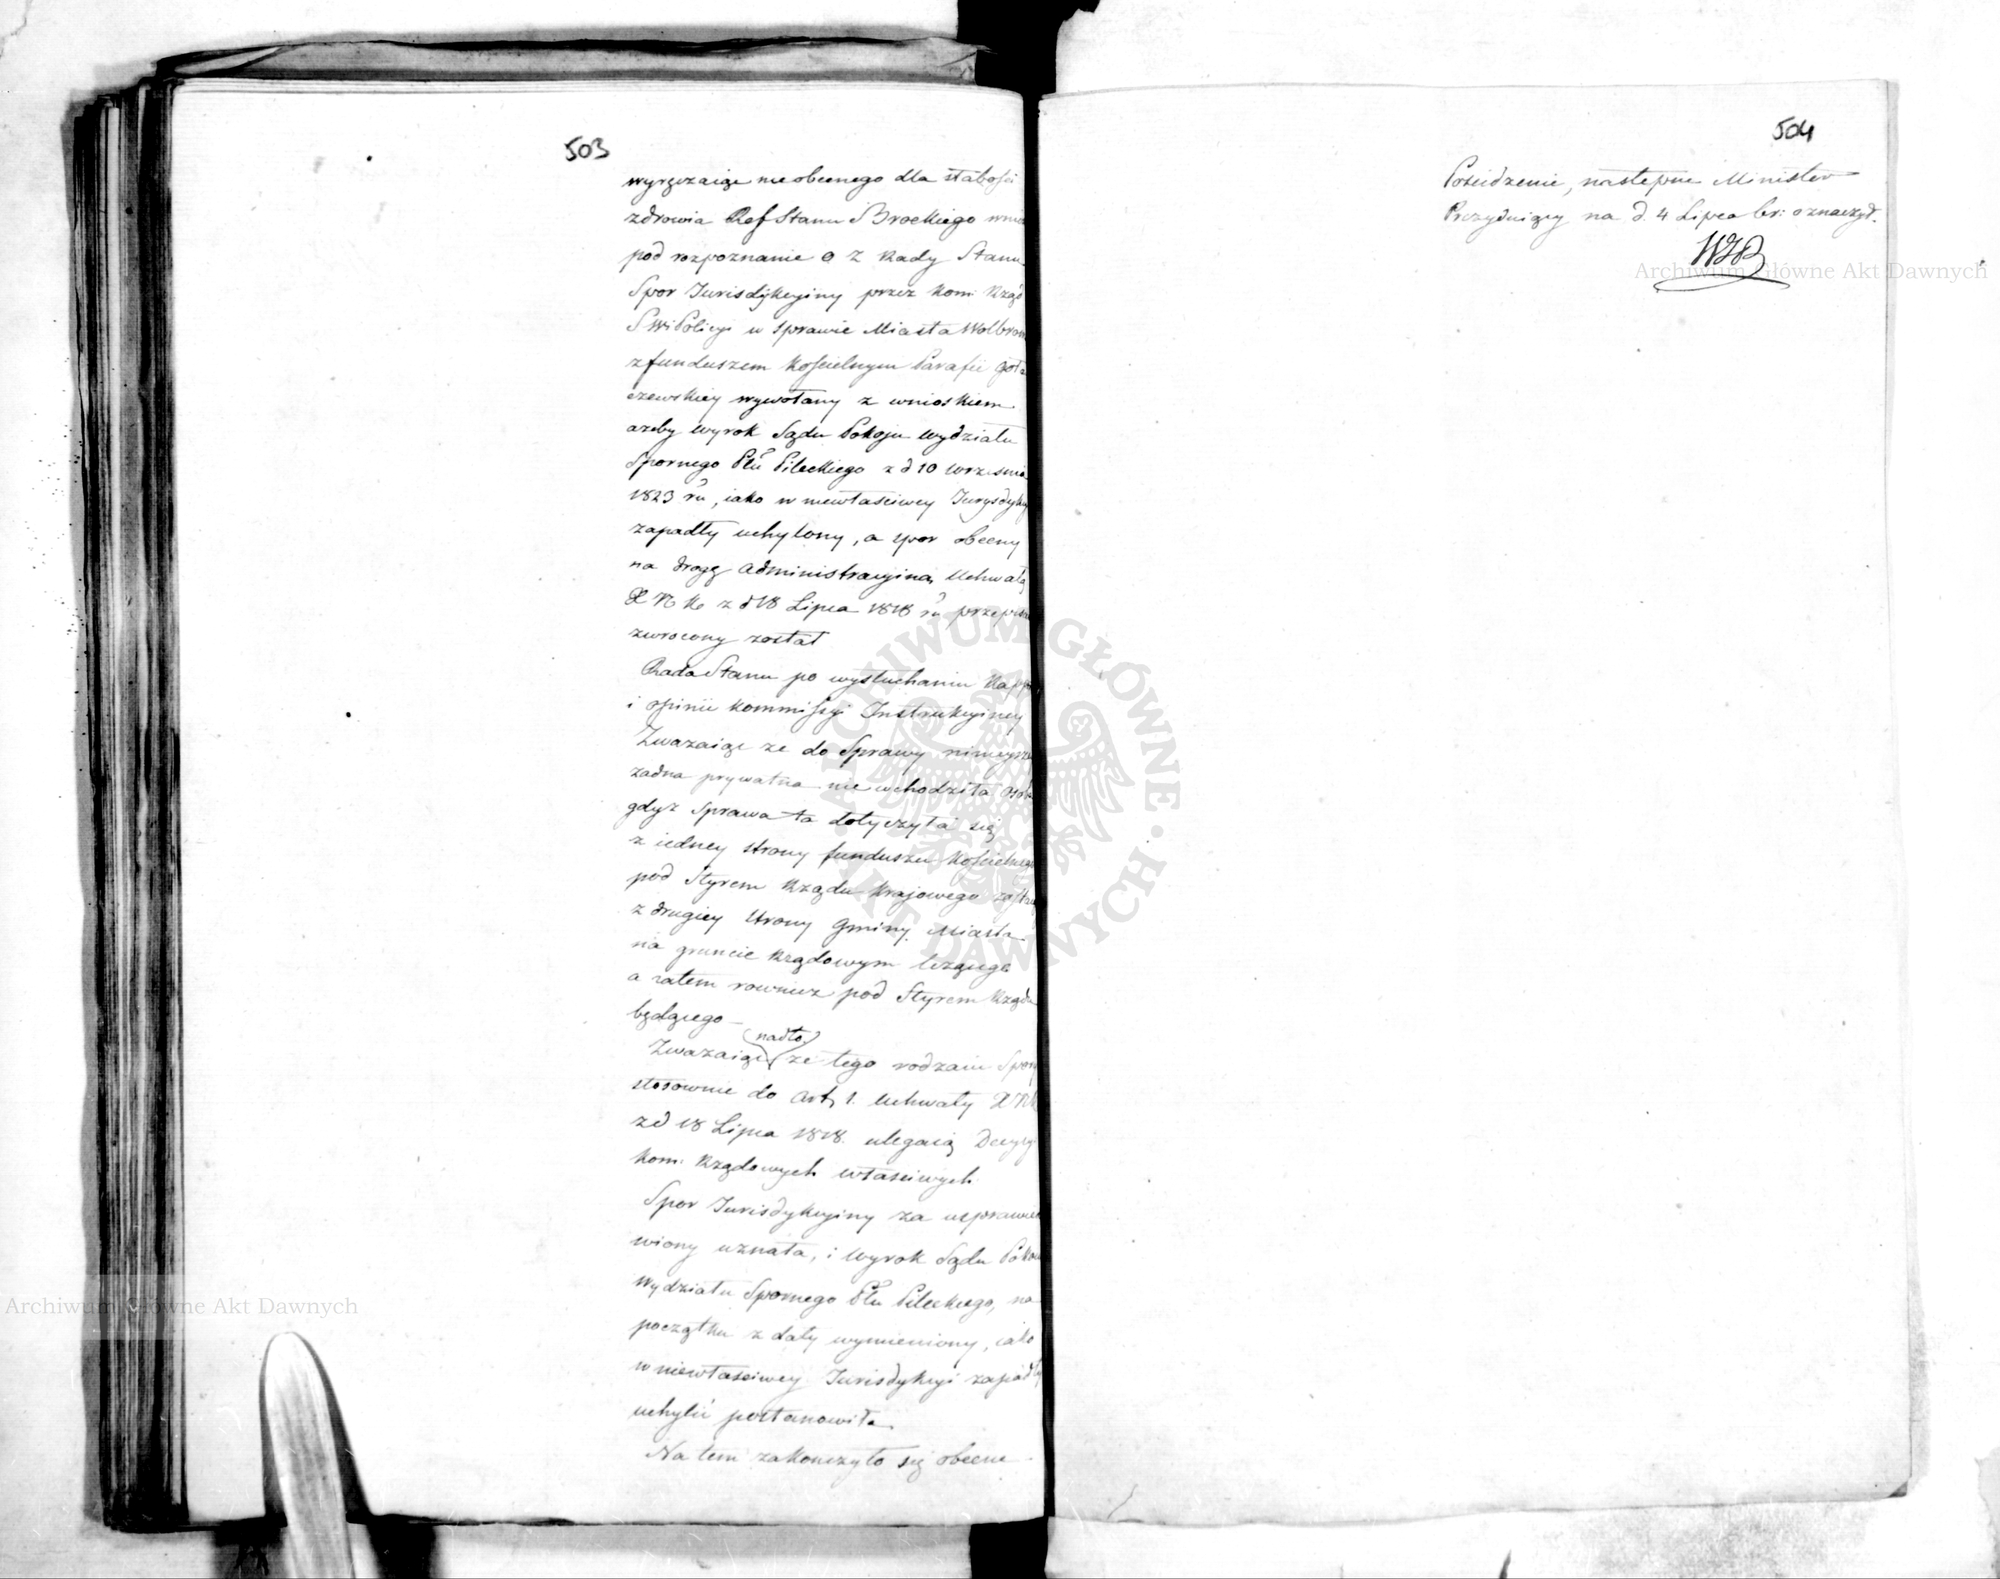 503
wyręczaiąc nieobecnego dla słabości
zdrowia Ref Stanu Brockiego wnios
pod rozpoznanie z Rady Stanu
Spor Jurisdykcyiny przez Kom: Rząd
S W i Policyi w sprawie Miasta Wolbrom
z funduszem Kościelnym Parafii Goła
czewskiey wywołany z wnioskiem
azeby wyrok Sądu Pokoju wydziału
Spornego Ptu Pileckiego z d 10 Wrzesnia
1823 ru, iako w niewłasciwey Jurysdykc
zapadły uchylony, a spor obecny
na drogę administracyiną Uchwałą
X N Ko z d 18 Lipca 1818 ru przepisa
zwrocony został
Rada Stanu po wysłuchaniu Rapp
i opinii Kommissyi Instrukcyiney
Zwazaiąc ze do Sprawy ninieysze
zadna prywatna nie wchodziła Osob
gdyz Sprawa ta dotyczyła się
z iedney strony funduszu Kościelnego
pod Styrem Rządu Krajowego
z drugiey strony Gminy Miasta
na gruncie Rządowym lezącego
a zatem rowniez pod Styrem Rządu
będącego
nadto
Zwazaiąc ze tego rodzaiu Spory
stosownie do art, 1. Uchwały X N K
z d 18 Lipca 1818. ulegaią Decyzyi
Kom: Rządowych własciwych
Spor Jurisdykcyiny za usprawiedli
wiony uznała, i wyrok Sądu Pokoiu
Wydziału Spornego Ptu Pileckiego, na
początku z daty wymieniony, iako
w niewłasciwey Jurisdykcyi zapadły
uchylić postanowiła
Na tem zakonczyło się obecne
504
Posiedzenie, następne Minister
Prezyduiący na d. 4 Lipca br: oznaczył.
Archiwum Główne Akt Dawnych
ARCHIWUM GŁÓWNE AKT DAWNYCH
Archiwum Główne Akt Dawnych